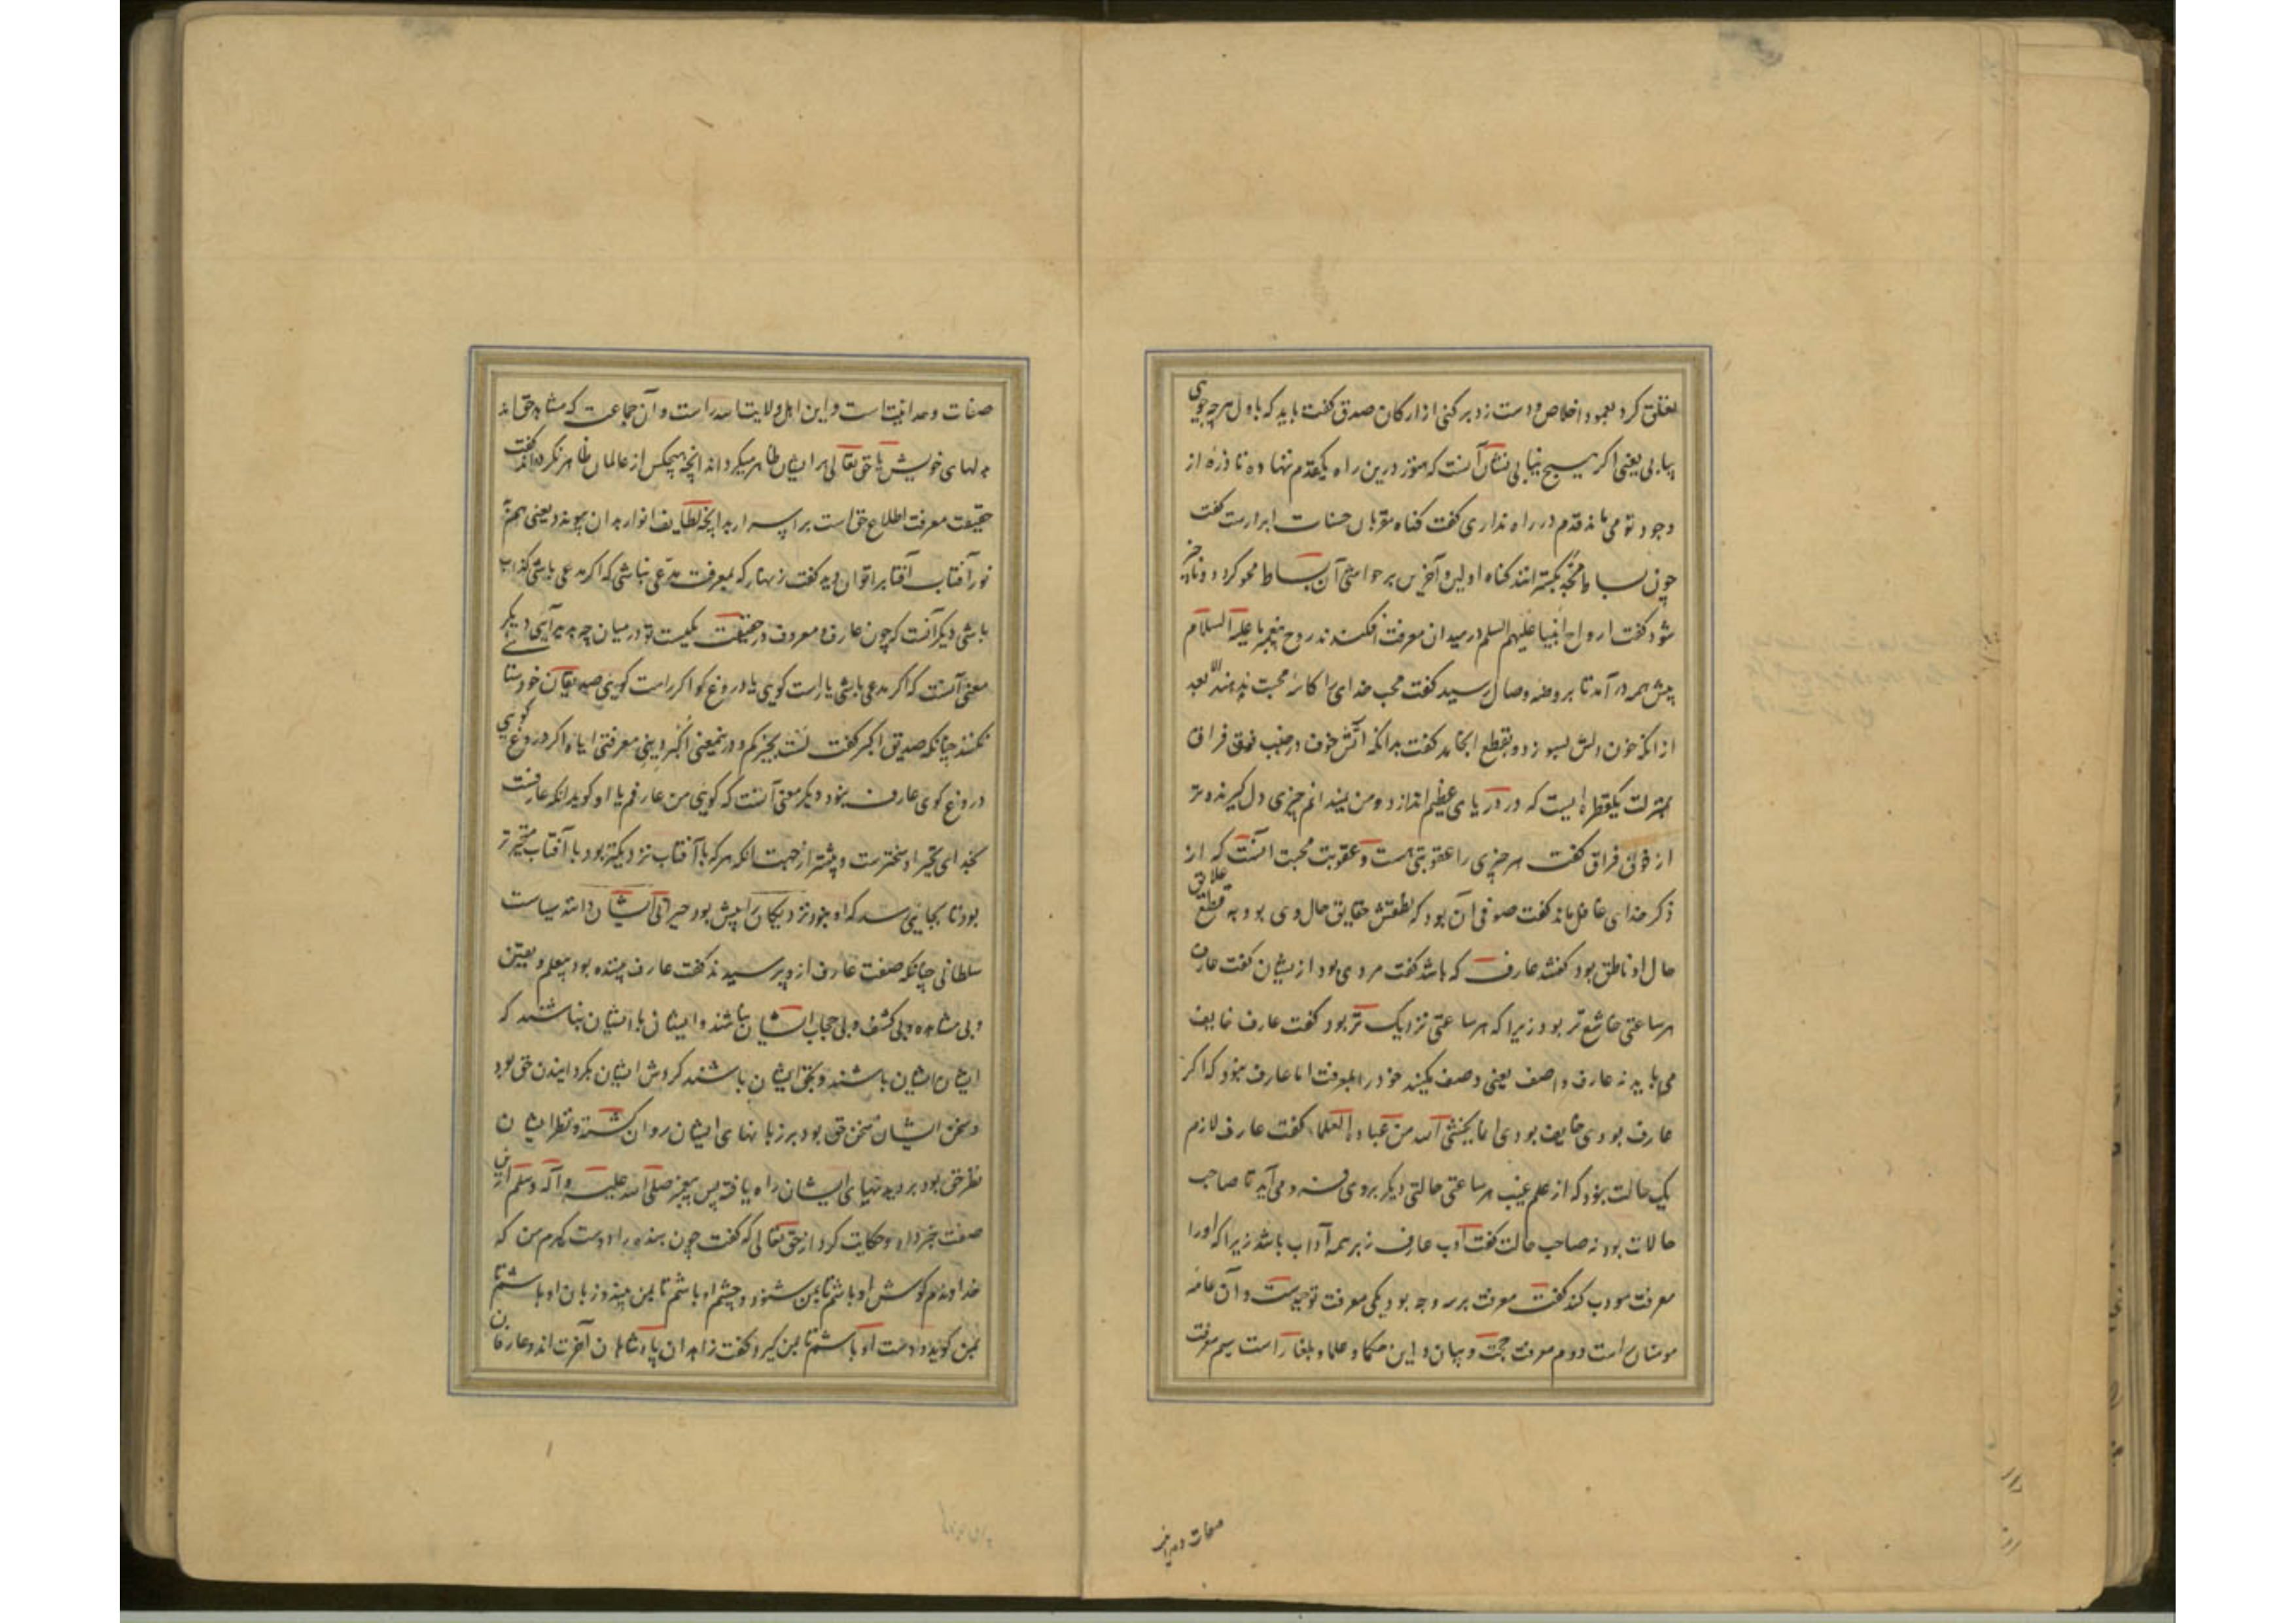 تعلق کرد بعمود اخلاص و دست زد بر کنی از ارکان صدق گفت باید که باول هرچه جویی
بیابی یعنی اگر هیچ نیابی نشان آنست که هنوز درین راه یکقدم ننهاده تا ذرهٔ از
وجود تو می ماند قدم در راه نداری گفت گناه مقربان حسنات ابرارست گفت
چون بساط مجد بگسترانند گناه اولین و آخرین بر حواشی آن بساط محو گردد و ناچیز
شود گفت ارواح انبیا علیهم السلم در میدان معرفت افکندند روح پیغمبر ما علیه السلام
پیش همه در آمد تا بروضه وصال رسید گفت محب خدای را کاس محبت ندهند الا بعد
از انکه خون دلش بسوزد و بقطع انجامد گفت بدانکه آتش خوف در جنب خوف فراق
بمنزلت یکقطره ایست که در دریای عظیم اندازد و من نمیدانم چیزی دل گیرنده تر
از خوف فراق گفت هر چیزی را عقوبتی هست و عقوبت محبت آنست که از
ذکر خدای غافل ماند گفت صوفی آن بود که نطقش حقایق حال وی بود به قطع علایق
حال او ناطق بود گفتند عارف که باشد گفت مردی بود ازیشان گفت عارف
هر ساعتی خاشع تر بود زیرا که هر ساعتی نزدیک تر بود گفت عارف خایف
می باید نه عارف واصف یعنی وصف میکند خود را بمعرفت اما عارف نبود که اگر
عارف بودی خایف بودی انما یخشی الله من عباده العلماء گفت عارف لازم
یک حالت نبود که از علم غیب هر ساعتی حالتی دیگر بروی فرو می آید تا صاحب
حالات بود نه صاحب حالت گفت ادب عارف زبر همه آداب باشد زیرا که او را
معرفت مودب کند گفت معرفت بر سه وجه بود یکی معرفت توحیدست و آن عامه
مومنان راست دوم معرفت حجت و بیان و این حکما و علما و بلغا راست سیم معرفت
صفات وحدانیت
صفات وحدانیتست و این اهل ولایت الله راست و آن جماعت که مشاهد حق اند
بدلهای خویش تا حق تعالی بر ایشان ظاهر میگرداند آنچه بهیچکس از عالمان ظاهر نگرداند گفت
حقیقت معرفت اطلاع حق است بر اسرار بدانچه لطایف انوار بدان پیوندد یعنی هم به
نور آفتاب آفتاب را توان دید گفت زنهار که بمعرفت مدعی نباشی که اگر مدعی باشی کذاب
باشی دیگر آنست که چون عارف و معروف در حقیقت یکیست تو در میان چه پدید می آیی دیگر
معنی آنست که اگر مدعی باشی یا راست گویی یا دروغ گو اگر راست گویی صدیقان خود ستا
نکنند چنانکه صدیق اکبر گفت لست بخیرکم و درینمعنی اکبر ذنبی معرفتی ایاه و اگر دروغ گویی
دروغ گوی عارف نبود دیگر معنی آنست که گویی من عارفم یا او گوید آنکه عارفست
بخدای تحیر او سختترست و بیشتر از جهت آنکه هر که بآفتاب نزدیکتر بود بآفتاب متحیر تر
بود تا بجایی رسد که او نبود نزدیکان را بیش بود حیرانی ایشان دانند سیاست
سلطانی چنانکه صفت عارف از وپرسیدند گفت عارف بیننده بود بیعلم و بیعین
و بی مشاهده و بی کشف و بی حجاب ایشان نباشند و ایشان با ایشان نباشند که
ایشان ایشان باشند و بحق ایشان باشند گردش ایشان بگردانیدن حق بود
و سخن ایشان سخن حق بود بر زبانهای ایشان روان گشته و نظر ایشان
نظر حق بود بر دیدهای ایشان راه یافته پس پیغمبر صلی الله علیه و آله و سلم ازین
صفت خبر داد و حکایت کرد از حق تعالی که گفت چون بنده را دوست گیرم من که
خداوندم گوش او باشم تا بمن شنود و چشم او باشم تا بمن بیند و زبان او باشم تا
بمن گوید و دست او باشم تا بمن گیرد و گفت زاهدان پادشاهان آخرت اند و عارفان